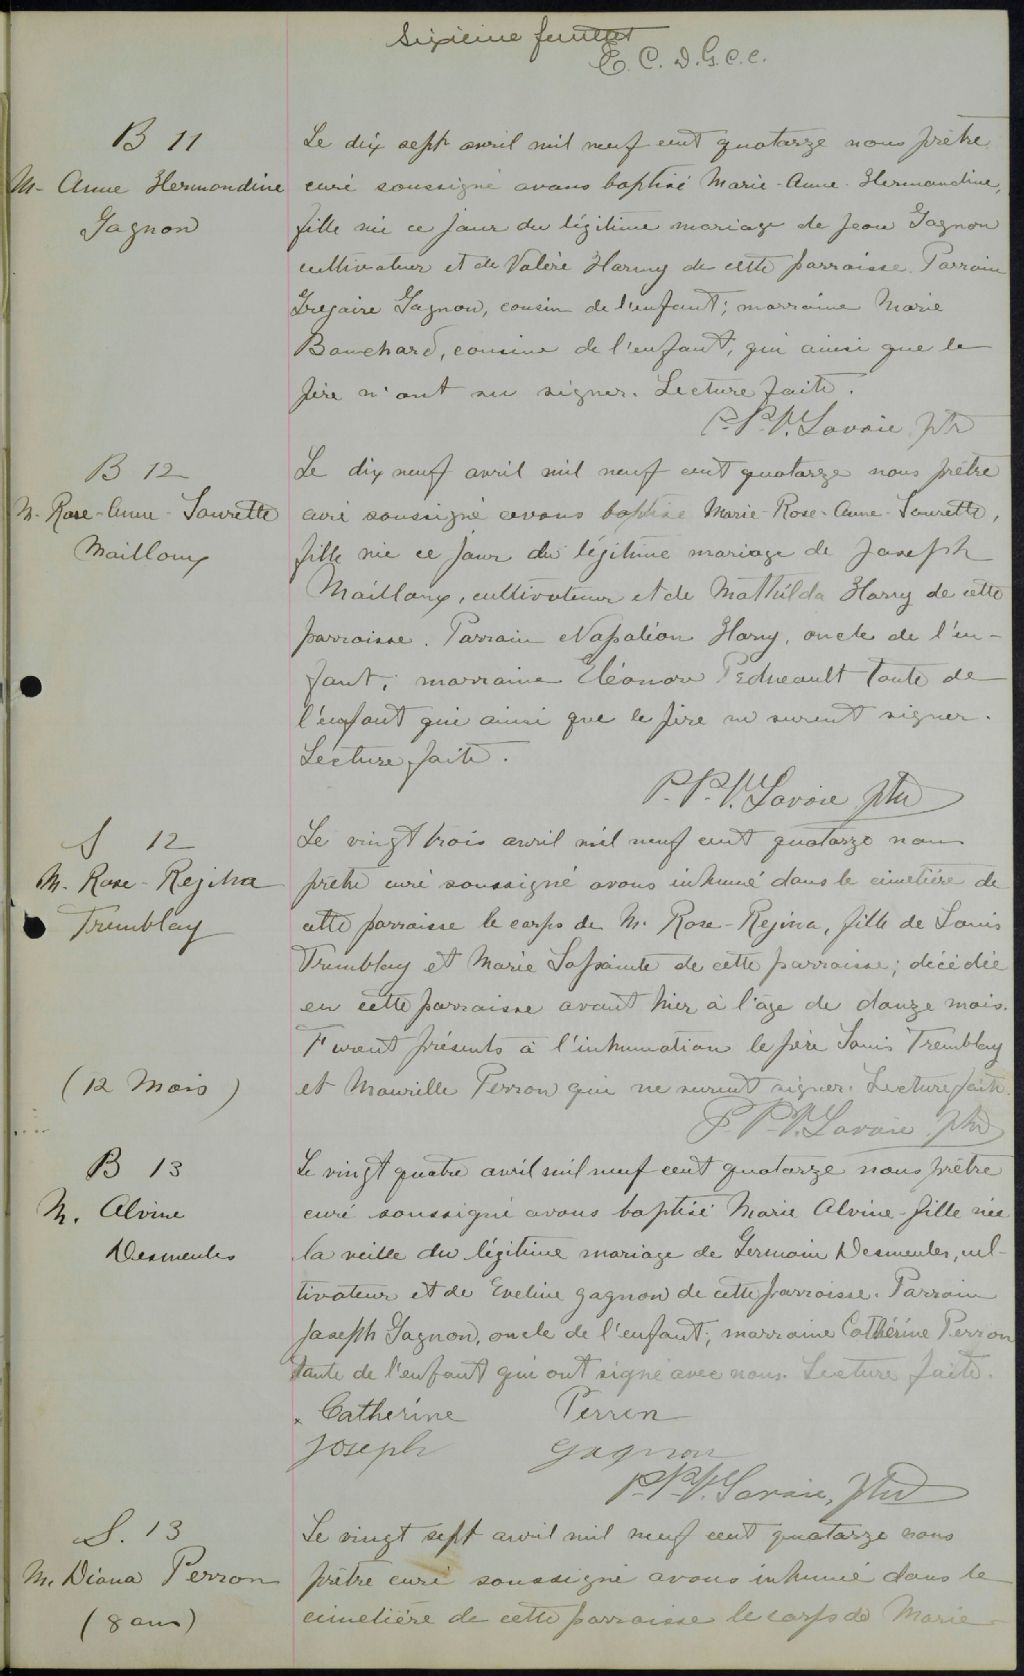 Sixième feuillet
E. C. D. G. C. C.
B 11
M- Anne Hermondine
Gagnon
Le dix sept avril mil neuf cent quatorze nous prêtre
curé soussigné avons baptisé Marie-Anne-Hermandine,
fille née ce jour du légitime mariage de Jean Gagnon
cultivateur et de Valérie Harvey de cette parroisse. Parrain
Gregoire Gagnon, cousin de l'enfant; marraine Marie
Bouchard, cousine de l'enfant, qui ainsi que le
père n'ont su signer. Lecture faite.
P. P. V. Savoie ptre
B 12
M- Rose-Anne-Laurette
Mailloux
Le dix neuf avril mil neuf cent quatorze nous prêtre
curé soussigné avons baptisé Marie-Rose-Anne-Laurette,
fille née ce jour du légitime mariage de Joseph
Mailloux, cultivateur et de Mathilda Harvy de cette
parroisse. Parrain Napoléon Harvy, oncle de l'en-
fant; marraine Eléonore Pedneault tante de
l'enfant qui ainsi que le père ne surent signer.
Lecture faite.
P. P. V. Savoie ptre
S 12
M. Rose-Rejina
Tremblay
(12 Mois)
Le vingt trois avril mil neuf cent quatorze nous
prêtre curé soussigné avons inhumé dans le cimetière de
cette parroisse le corps de M. Rose-Rejina, fille de Louis
Tremblay et Marie Lapointe de cette parroisse; décédée
en cette parroisse avant hier à l'âge de douze mois.
Furent présents à l'inhumation le père Louis Tremblay
et Maurille Perron qui ne surent signer. Lecture faite.
P. P. V. Savoie ptre
B 13
M. Alvine
Desmeules
Le vingt quatre avril mil neuf cent quatorze nous prêtre
curé soussigné avons baptisé Marie Alvine fille née
la veille du légitime mariage de Germain Desmeules, cul-
tivateur et de Eveline gagnon de cette parroisse. Parrain
Joseph Gagnon, oncle de l'enfant; marraine Cathérine Perron
tante de l'enfant qui ont signé avec nous. Lecture faite.
Catherine Perron
Joseph Gagnon
P. P. V. Savoie, ptre
S. 13
M. Diana Perron
(8 ans)
Le vingt sept avril mil neuf cent quatorze nous
prêtre curé soussigné avons inhumé dans le
cimetière de cette parroisse le corps de Marie-